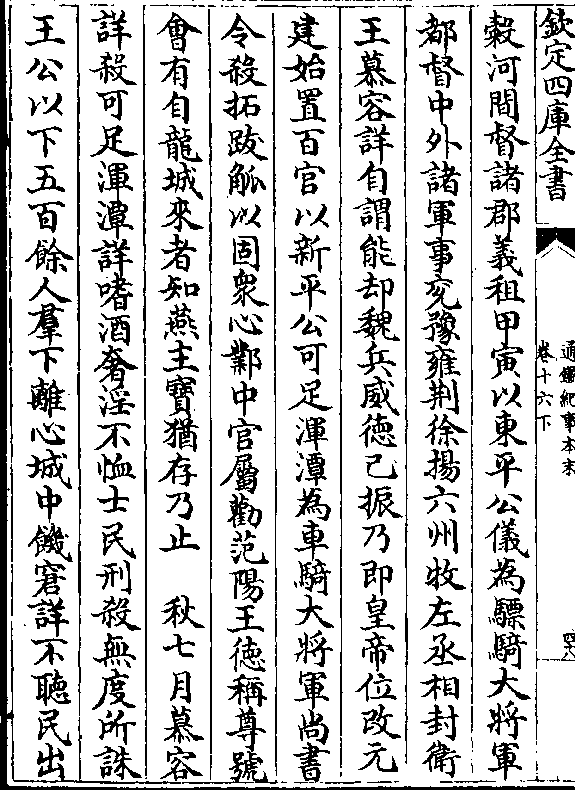 欽定四庫全書
通鑑紀事本末
卷十六下
榖河間督諸郡義租甲寅以東平公儀為驃騎大將軍
都督中外諸軍事兖豫雍荆徐揚六州牧左丞相封衛
王慕容詳自謂能却魏兵威徳已振乃即皇帝位改元
建始置百官以新平公可足渾潭為車騎大將軍尚書
令殺拓跋觚以固衆心鄴中官屬勸范陽王徳稱尊號
會有自龍城來者知燕主寶猶存乃止　秋七月慕容
詳殺可足渾潭詳嗜酒奢淫不恤士民刑殺無度所誅
王公以下五百餘人羣下離心城中饑窘詳不聽民出